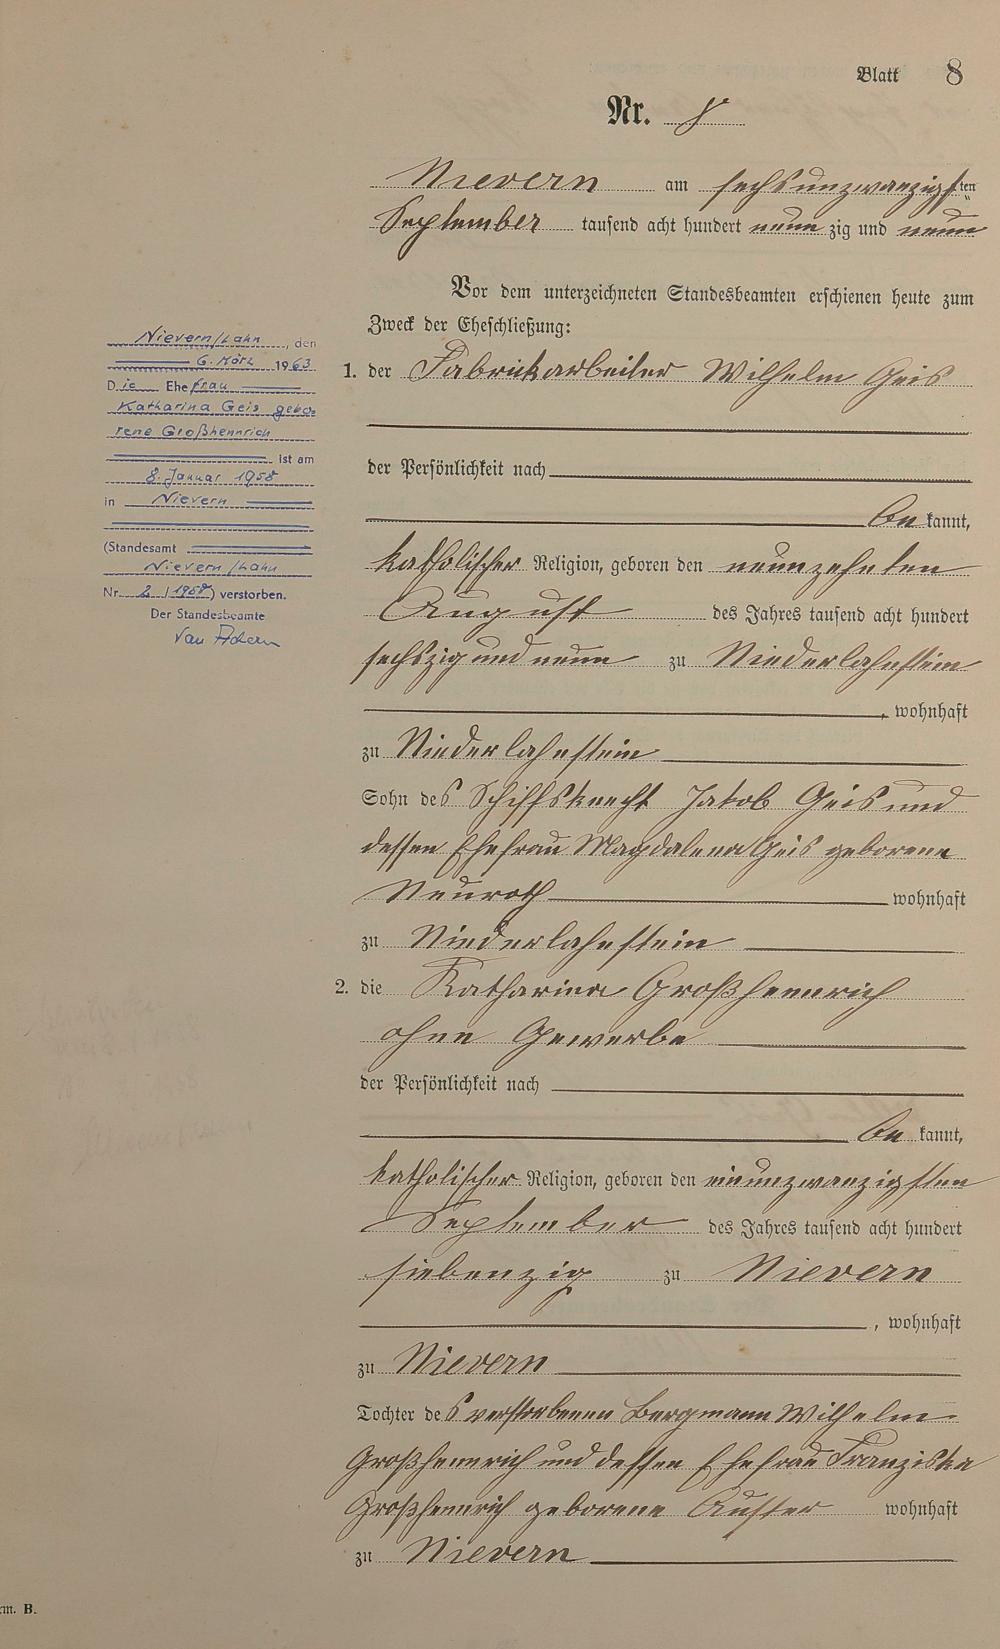 Blatt 8
Nr. 8
Nievern am sechsunzwanzigsten
September tausend acht hundert neun zig und neun
Vor dem unterzeichneten Standesbeamten erschienen heute zum
Zweck der Eheschließung:
1. der Fabrickarbeiter Wilhelm Geis
der Persönlichkeit nach
be kannt,
katholischer Religion, geboren den neunzehnten
August des Jahres tausend acht hundert
sechszig und neun zu Niederlahnstein
, wohnhaft
zu Niederlahnstein
Sohn des Schiffsknecht Jakob Geis und
dessen Ehefrau Magdalena Geis geborene
Neuroth wohnhaft
zu Niederlahnstein
2. die Katharina Großhennrich
ohne Gewerbe
der Persönlichkeit nach
be kannt,
katholischer Religion, geboren den einunzwanzigsten
September des Jahres tausend acht hundert
siebenzig zu Nievern
, wohnhaft
zu Nievern
Tochter des verstorbenen Bergmann Wilhelm
Großhennrich und dessen Ehefrau Franziska
Großhennrich geborene wohnhaft
zu Nievern
Nievern/Lahn, den
6. März 1963
Die Ehefrau
Katharina Geis gebo=
rene Großhennrich
ist am
8. Januar 1958
in Nievern
(Standesamt
Nievern/Lahn
Nr. 2 /1958) verstorben.
Der Standesbeamte
rm. B.